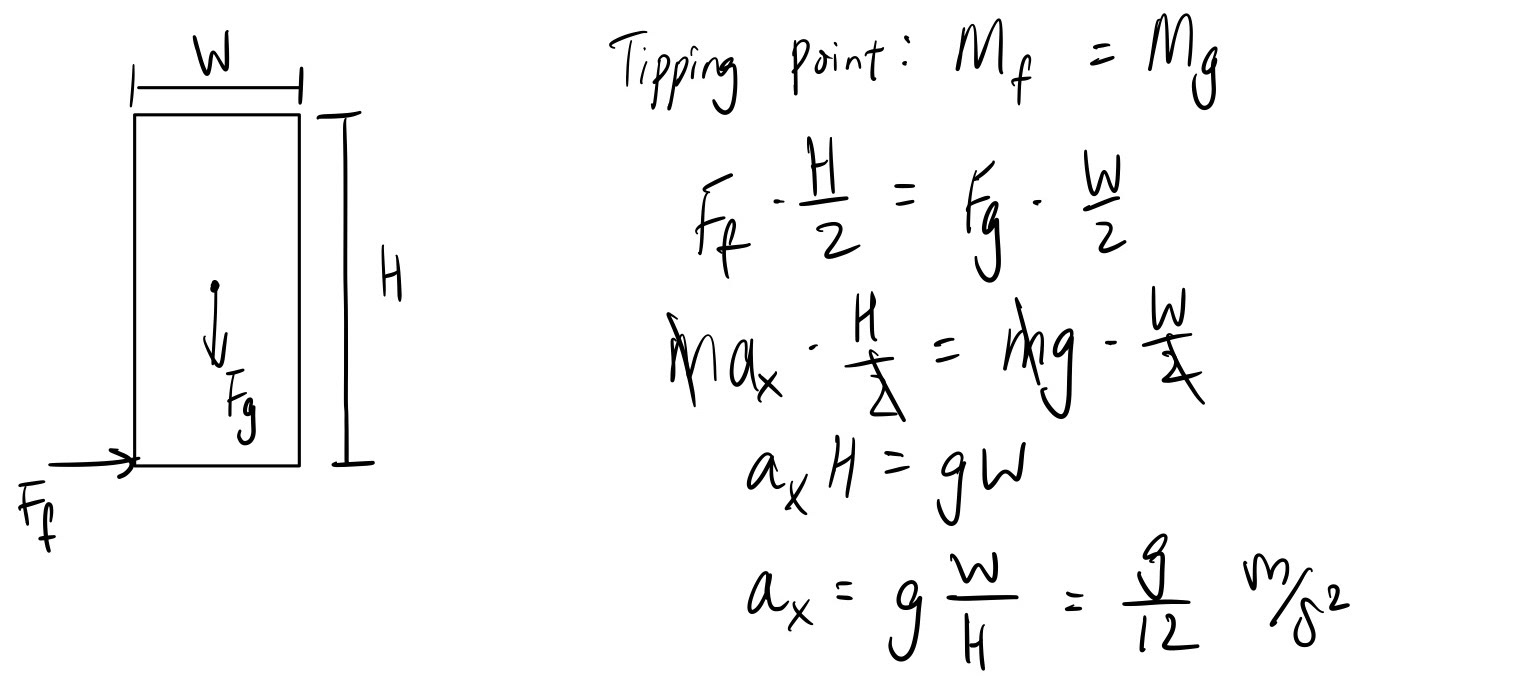 W
H
F_g
F_f
Tipping point: M_f = M_g
F_f · H/2 = F_g · W/2
ma_x · H/2 = mg · W/2
a_x H = gW
a_x = g W/H = g/12 m/s²